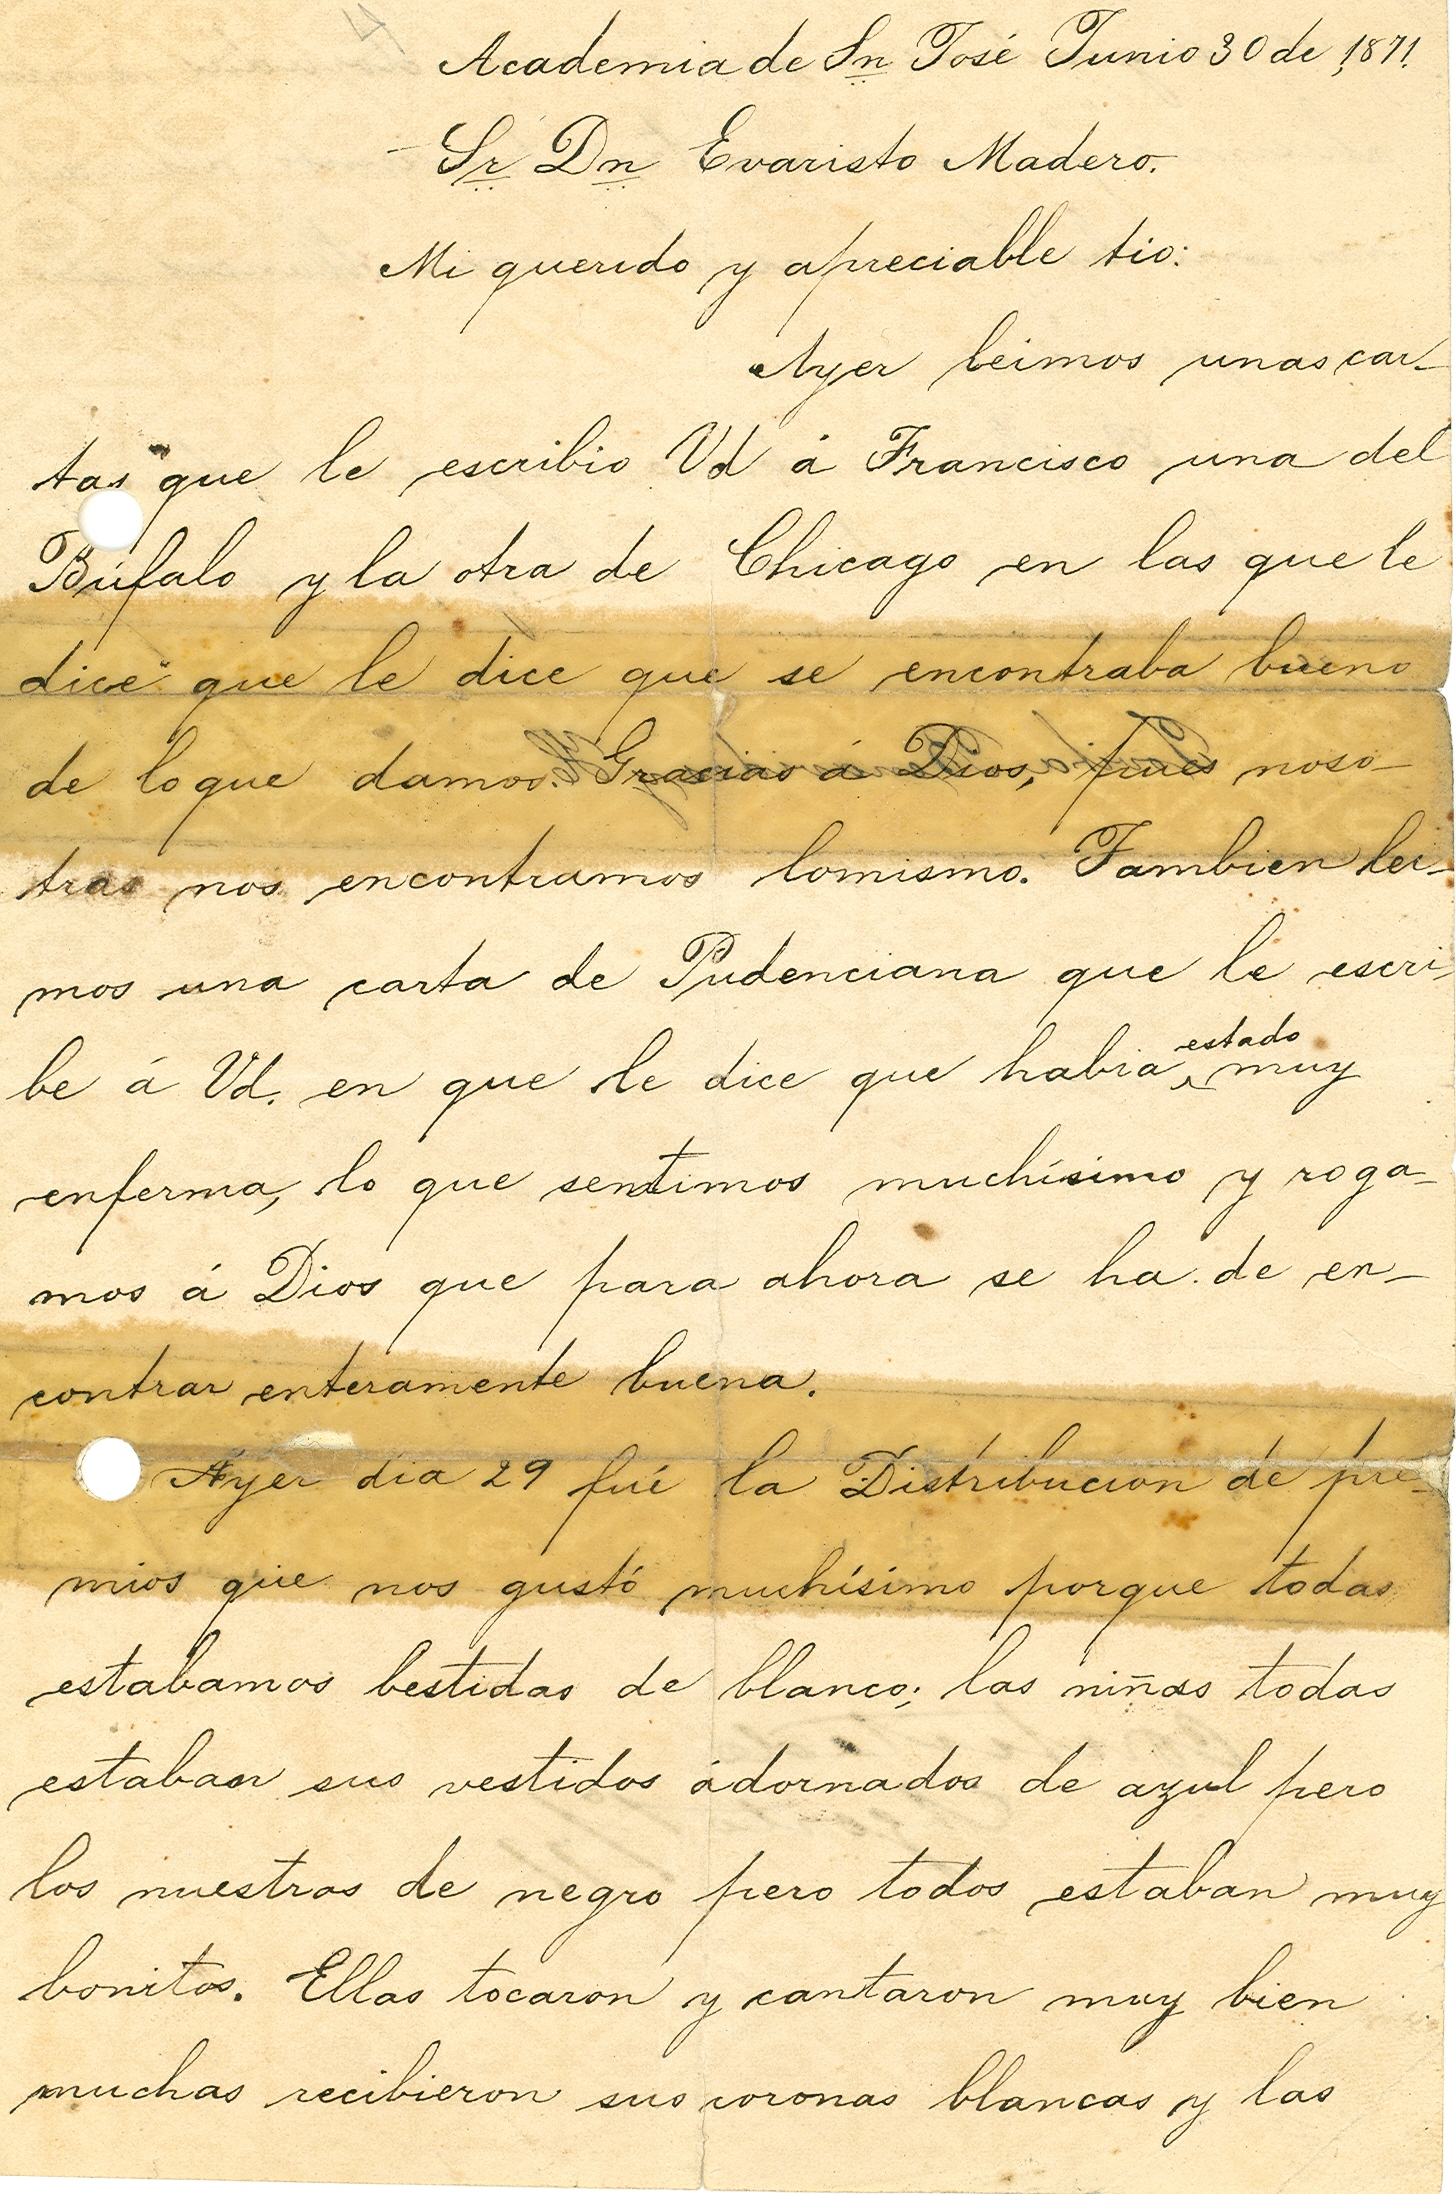 Academia de Sn José Junio 30 de 1871.
Sr Dn Evaristo Madero.
Mi querido y apreciable tio:
Ayer leimos unas car-
tas que le escribio Vd á Francisco una del
Búfalo y la otra de Chicago en las que le
dice que le dice que se encontraba bueno
de lo que damos. Gracias á Dios, pues noso-
tras nos encontramos lo mismo. Tambien lei-
mos una carta de Pudenciana que le escri-
be á Vd. en que le dice que habia estado muy
enferma, lo que sentimos muchísimo y roga-
mos á Dios que para ahora se ha de en-
contrar enteramente buena.
Ayer dia 29 fué la Distribucion de pre-
mios que nos gustó muchísimo porque todas
estabamos bestidas de blanco; las niñas todas
estaban sus vestidos ádornados de azul pero
los nuestros de negro pero todos estaban muy
bonitos. Ellas tocaron y cantaron muy bien
muchas recibieron sus coronas blancas y las